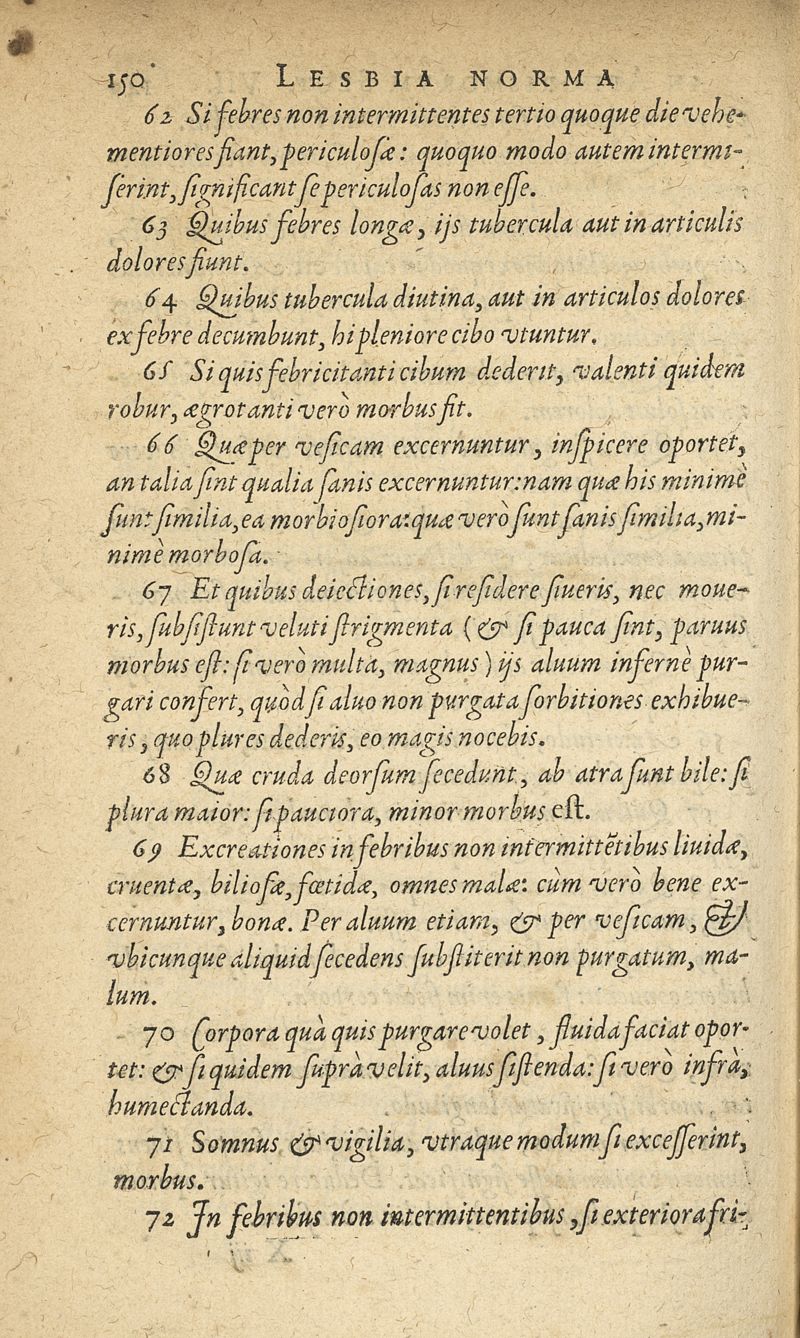 150 LESBIA NORMA
62 Si febres non intermittentes tertio quoque die vehe-
mentiores fiant, periculosæ: quoquo modo autem intermi-
serint, significant se periculosas non esse.
63 Quibus febres longæ, ijs tubercula aut in articulis
dolores fiunt.
64 Quibus tubercula diutina, aut in articulos dolores
ex febre decumbunt, hi pleniore cibo vtuntur.
65 Si quis febricitanti cibum dederit, valenti quidem
robur, ægrotanti verò morbus fit.
66 Quæ per vesicam excernuntur, inspicere oportet,
an talia sint qualia sanis excernuntur: nam quæ his minimè
sunt similia, ea morbiosiora: quæ verò sunt sanis similia, mi-
nimè morbosa.
67 Et quibus deiectiones, si residere siueris, nec moue-
ris, subsistunt veluti strigmenta (& si pauca sint, paruus
morbus est: si verò multa, magnus) ijs aluum infernè pur-
gari confert, quòd si aluo non purgata sorbitiones exhibue-
ris, quo plures dederis, eo magis nocebis.
68 Quæ cruda deorsum secedunt, ab atra sunt bile: si
plura maior: si pauciora, minor morbus est.
69 Excreationes in febribus non intermittẽtibus liuidæ,
cruentæ, biliosæ, fœtidæ, omnes malæ: cùm verò bene ex-
cernuntur, bonæ. Per aluum etiam, & per vesicam, &
vbicunque aliquid secedens substiterit non purgatum, ma-
lum.
70 Corpora quà quis purgare volet, fluida faciat opor-
tet: & si quidem suprà velit, aluus sistenda: si verò infrà,
humectanda.
71 Somnus & vigilia, vtraque modum si excesserint,
morbus.
72 In febribus non intermittentibus, si exteriora fri-